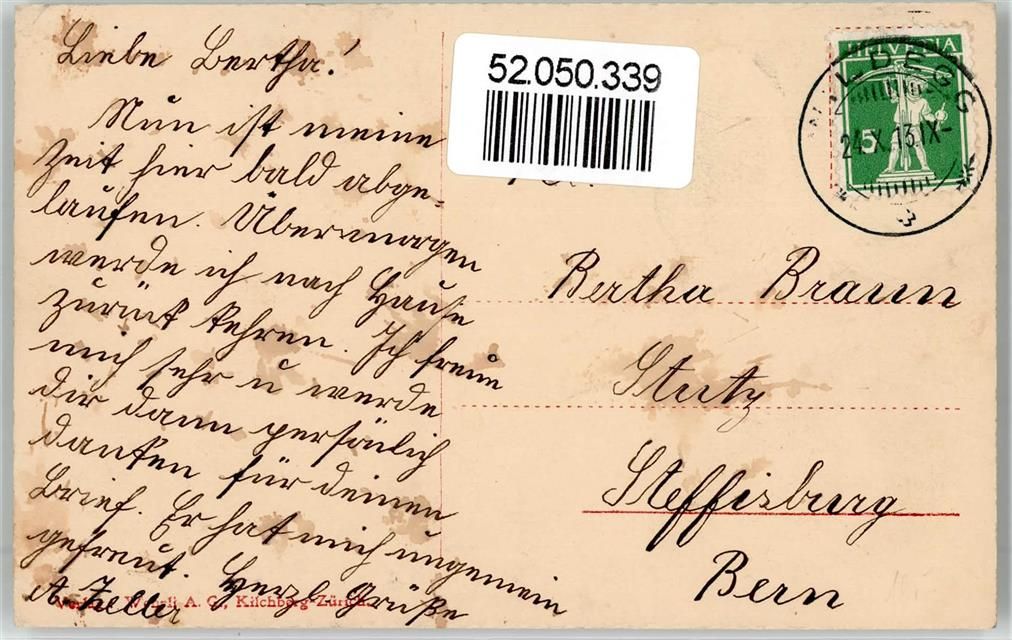 Liebe Bertha!
Nun ist meine
Zeit hier bald abge-
laufen. Übermorgen
werde ich nach Hause
zurück kehren. Ich freue
mich sehr u werde
dir dann persönlich
danken für deinen
Brief. Er hat mich ungemein
gefreut. Herzl. Grüße
A. Zeller
52.050.339
HELVETIA
5
WILDEGG
24.X.13.IX-
Bertha Braun
Stutz
Steffisburg
Bern
Verlag Wehrli A. G., Kilchberg-Zürich